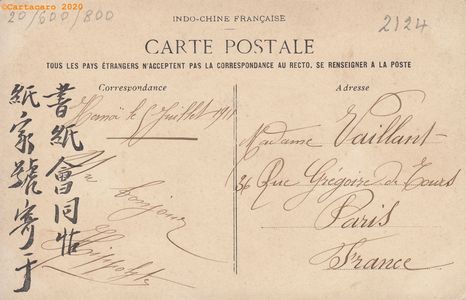 ©Cartacaro 2020
20/600/800
2124
INDO-CHINE FRANÇAISE
CARTE POSTALE
TOUS LES PAYS ÉTRANGERS N'ACCEPTENT PAS LA CORRESPONDANCE AU RECTO, SE RENSEIGNER A LA POSTE
Correspondance
Adresse
Hanoï le 5 Juillet 1911
Un bonjour
Hippolyte
書紙會同帖
紙家號寄于
Madame Vaillant
36 Rue Grégoire de Tours
Paris
France